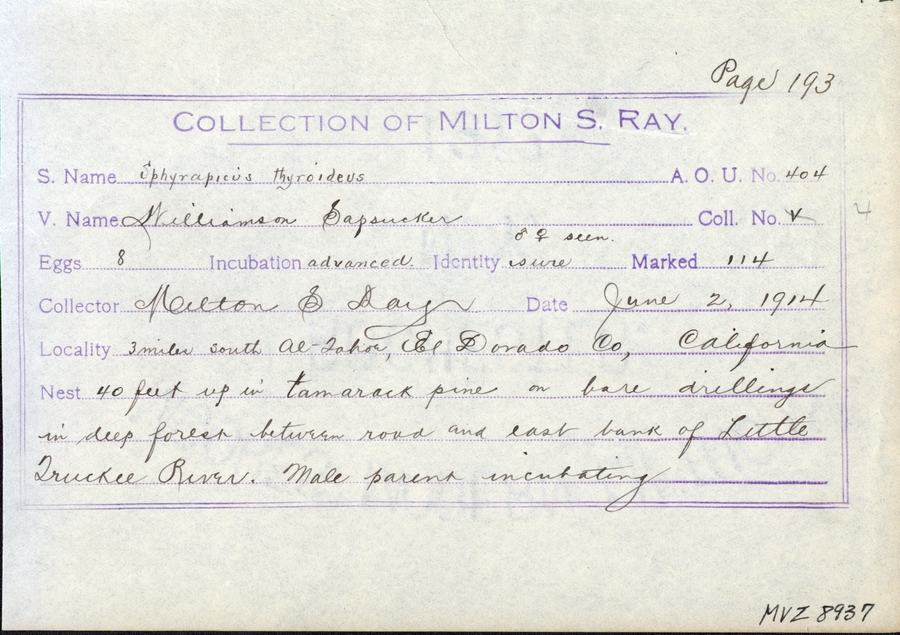 Page 193
COLLECTION OF MILTON S. RAY.
S. Name Sphyrapicus thyroideus A. O. U. No. 404
V. Name Williamson Sapsucker Coll. No. V 4
♂ ♀ seen.
Eggs 8 Incubation advanced. Identity sure Marked 114
Collector Milton S Ray Date June 2, 1914
Locality 3 miles south Al-Tahoe, El Dorado Co, California
Nest 40 feet up in tamarack pine on bare drillings
in deep forest between road and east bank of Little
Truckee River. Male parent incubating
MVZ 8937